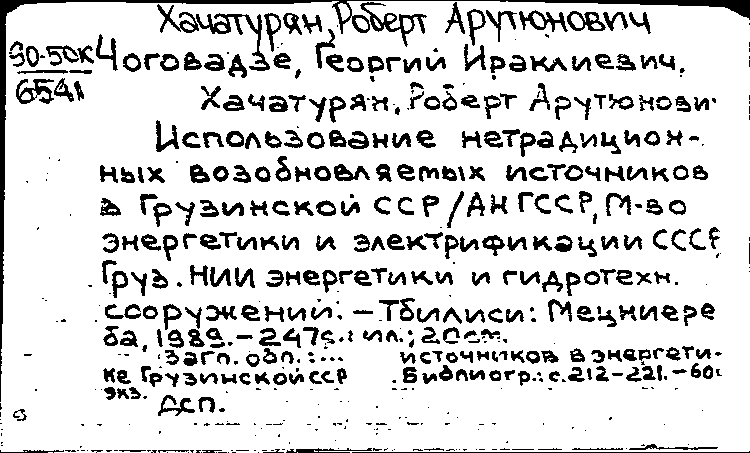 Хачатурян, Роберт Арутюнович
90-50к Чоговадзе, Георгий Ираклиевич,
6541 Хачатурян, Роберт Арутюнови
Использование нетрадицион-
ных возобновляемых источников
в Грузинской ССР / АН ГССР, М-во
энергетики и электрификации СССР,
Груз. НИИ энергетики и гидротехн.
сооружений. – Тбилиси: Мецниере
ба, 1989. – 247с.: ил.; 20см.
Загл. обл.: ... источников в энергети-
ке Грузинской ССР Библиогр.: с. 212–221. – 60
экз.
ДСП.